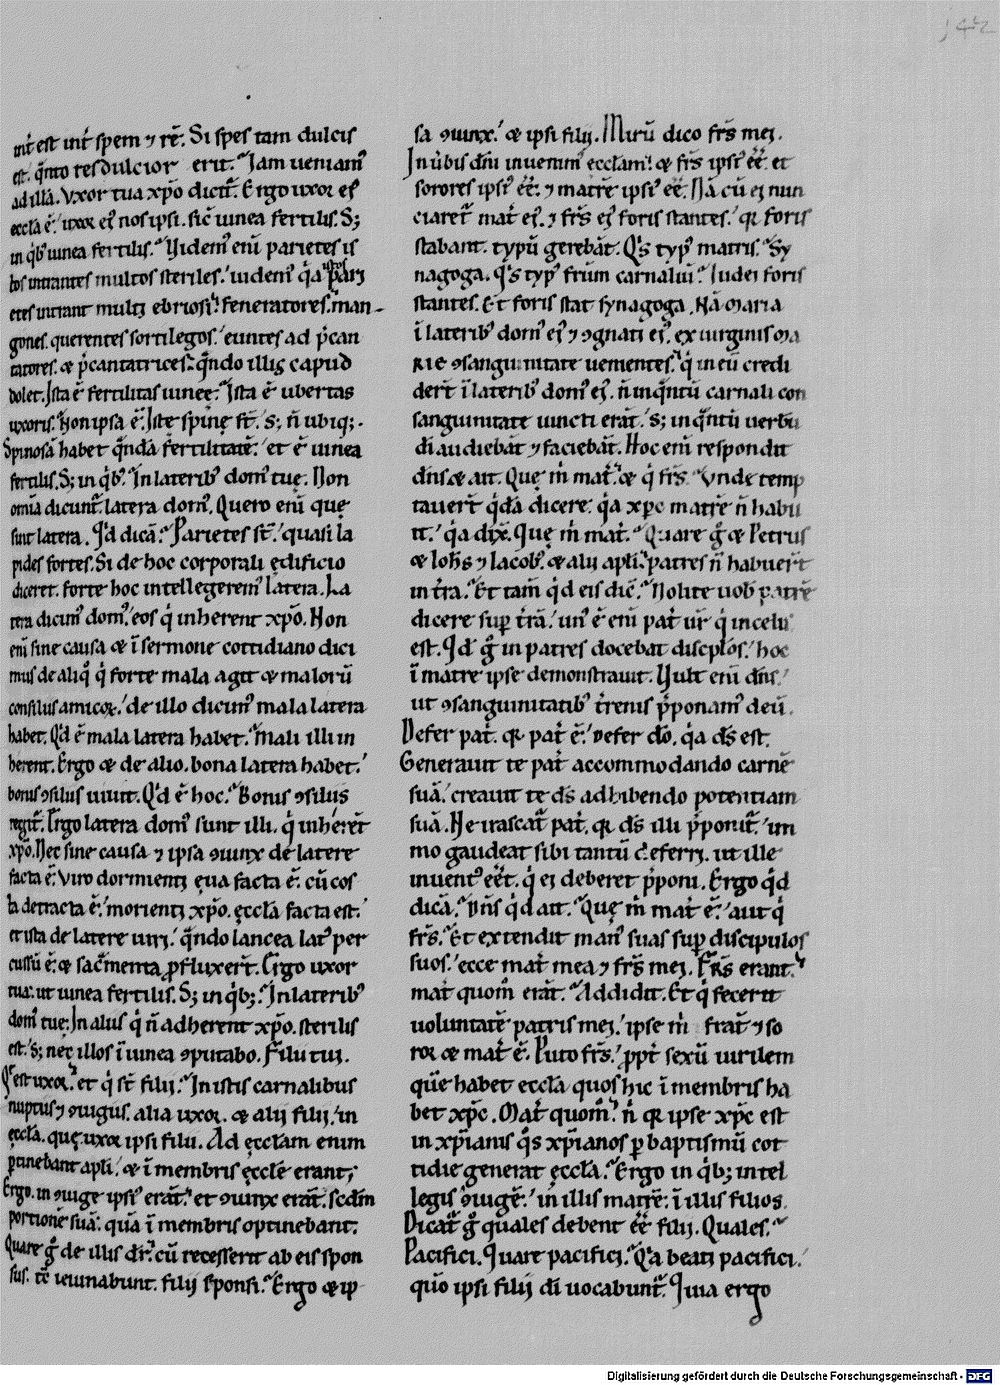 142
int̄ est int̄ spem ⁊ rē. Si spes tam dulcis
est. q̄nto res dulcior erit. Iam ueniam᷒
ad illā. Vxor tua xp̄o dicit᷑. Ergo uxor ei᷒
eccl̄a ē. uxor ei᷒ nos ipsi. sic̄ uinea fertilis. S;
in qͥb᷒ uinea fertilis. Uidem᷒ eni᷒ parietes is
tos intrantes multos steriles. uidem᷒ q̄a istos pari
etes intrant multi ebriosi. feneratores. man-
gones. querentes sortilegos. euntes ad p̄can
tatores. & p̄cantatrices. q̄ndo illis capud
dolet. Ista ē fertilitas uineę. Ista ē ubertas
uxoris. Non ipsa ē. Iste spinę st̄. S; n̄ ubiq;.
Spinosā habet q̄ndā fertilitatē. et ē uinea
fertilis. S; in qͥb᷒. In laterib᷒ dom᷒ tuę. Non
omīa dicunt᷑ latera dom᷒. Quero enī quę
sunt latera. Qͥd dicā. Parietes st̄. quasi la
pides fortes. Si de hoc corporali edificio
diceret. forte hoc intellegerem᷒ latera. La
tera dicim᷒ dom᷒. eos qͥ inherent xp̄o. Non
enī sine causa & ī sermone cottidiano dici
mus de aliqͦ qͥ forte mala agit & malorū
consilus amicor̄. de illo dicim᷒ mala latera
habet. Qͥd ē mala latera habet. Mali illi in
herent. Ergo & de alio. bona latera habet.
bonis ꝯsilus uiuit. Qͥd ē hoc. Bonis ꝯsilus
regit᷑. Ergo latera dom᷒ sunt illi. qͥ inherēt
xp̄o. Nec sine causa ⁊ ipsa ꝯiunx de latere
facta ē. Viro dormienti eua facta ē. cū cos
ta detracta ē. morienti xp̄o. ęccl̄a facta est.
et ista de latere uiri. q̄ndo lancea lat᷒ per
cussū ē. & sac̄menta ꝓfluxer̄t. Ergo uxor
tua. ut uinea fertilis. S; in qͥb;. In laterib᷒
dom᷒ tuę. In alus qͥ n̄ adherent xp̄o. sterilis
est. s; nec illos ī uinea ꝯputabo. Filii tui.
Q̄ est uxor. et qͥ st̄ filii. In istis carnalibus
nuptiis ⁊ ꝯiugiis. alia uxor. & alii filii. in
ęccl̄a. quę uxor ipsi filii. Ad ęcclam enim
ꝑtinebant apl̄i. & ī membris ęccl̄ę erant;
Ergo. in ꝯiuge ipsi᷒ erāt. et ꝯiunx erāt. scdm̄
portionē suā. quā ī membris optinebant.
Quare gͦ de illis dr̄. cū recesserit ab eis spon
sus. tc̄ ieiunabunt. filii sponsi. Ergo & ip
sa ꝯiunx. & ipsi filii. Mirū dico fr̄s mei.
In ūbis dn̄i inuenim᷒ ecclam. & fr̄s ipsi᷒ ēē. et
sorores ipsi᷒ ēē. ⁊ matrē ipsi᷒ ēē. Nā cū ei nun
ciaret᷑ mat̄ ei᷒. ⁊ fr̄s ei᷒ foris stantes. qͬ foris
stabant. typū gerebāt. Qͥs typ᷒ matris. Sy
nagoga. Qͥs typ᷒ fr̄um carnaliū. Iudei foris
stantes. Et foris stat synagoga. Nā Maria
ī laterib᷒ dom᷒ ei᷒ ⁊ ꝯgnati ei᷒. ex uirginis Ma
RIE ꝯsanguinitate uenientes. qͥ in eū credi
der̄t ī laterib᷒ dom᷒ ei᷒. n̄ inq̄ntū carnali con
sanguinitate uincti erāt. s; in q̄ntū uerbū
di audiebāt ⁊ faciebāt. Hoc enī respondit
dn̄s & ait. Que m̄ mat̄. & qͥ fr̄s. Vnde temp
tauer̄t qͥdā dicere. q̄a xp̄c matrē n̄ habu
it. q̄a dix̄. Quę m̄ mat̄. Quare gͦ & Petrus
& Ioh̄s ⁊ Iacob᷒. & alii apl̄i. patres n̄ habuer̄t
in tr̄a. Et tam̄ qͥd eis dic̄. Nolite uob̄ patrē
dicere sup̄ tr̄ā. un᷒ ē enī pat̄ ur̄ qͥ in celis
est. Qͥd gͦ in patres docebat discplos. hoc
ī matre ipse demonstrauit. Uult enī dn̄s.
ut ꝯsanguinitatib᷒ tr̄enis p̄ponam᷒ deū.
Defer pat̄. qͬ pat̄ ē. defer dō. q̄a ds̄ est.
Generauit te pat̄ accommodando carnē
suā. creauit te ds̄ adhibendo potentiam
suā. Ne irascat᷑ pat̄. qͬ ds̄ illi p̄ponit᷑. im
mo gaudeat sibi tantū deferri. ut ille
inuent᷒ ēēt. qͥ ei deberet p̄poni. Ergo qͥd
dicā. Dn̄s qͥd ait. Quę m̄ mat̄ ē. aut qͥ
fr̄s. Et extendit man᷒ suas sup̄ discipulos
suos. ecce mat̄ mea ⁊ fr̄s mei. Fr̄s erant.
mat̄ quom̄ erāt. Addidit. Et qͥ fecerit
uoluntatē patris mei. ipse m̄ frat̄ ⁊ so
ror & mat̄ ē. Puto fr̄s. ꝓpt̄ sexū uirilem
quē habet eccl̄a quos hic ī membris ha
bet xp̄c. Mat̄ quom̄. n̄ qͬ ipse xp̄c est
in xp̄ianis qͦs xp̄ianos ꝑ baptismū cot
tidie generat eccl̄a. Ergo in qͥb; intel
legis ꝯiugē. in illis matrē. ī illis filios.
Dicat᷑ gͦ quales debent ēē filii. Quales.
Pacifici. Quare pacifici. Q̄a beati pacifici.
quō ipsi filii di uocabunt᷑. Quia ergo
Digitalisierung gefördert durch die Deutsche Forschungsgemeinschaft - DFG